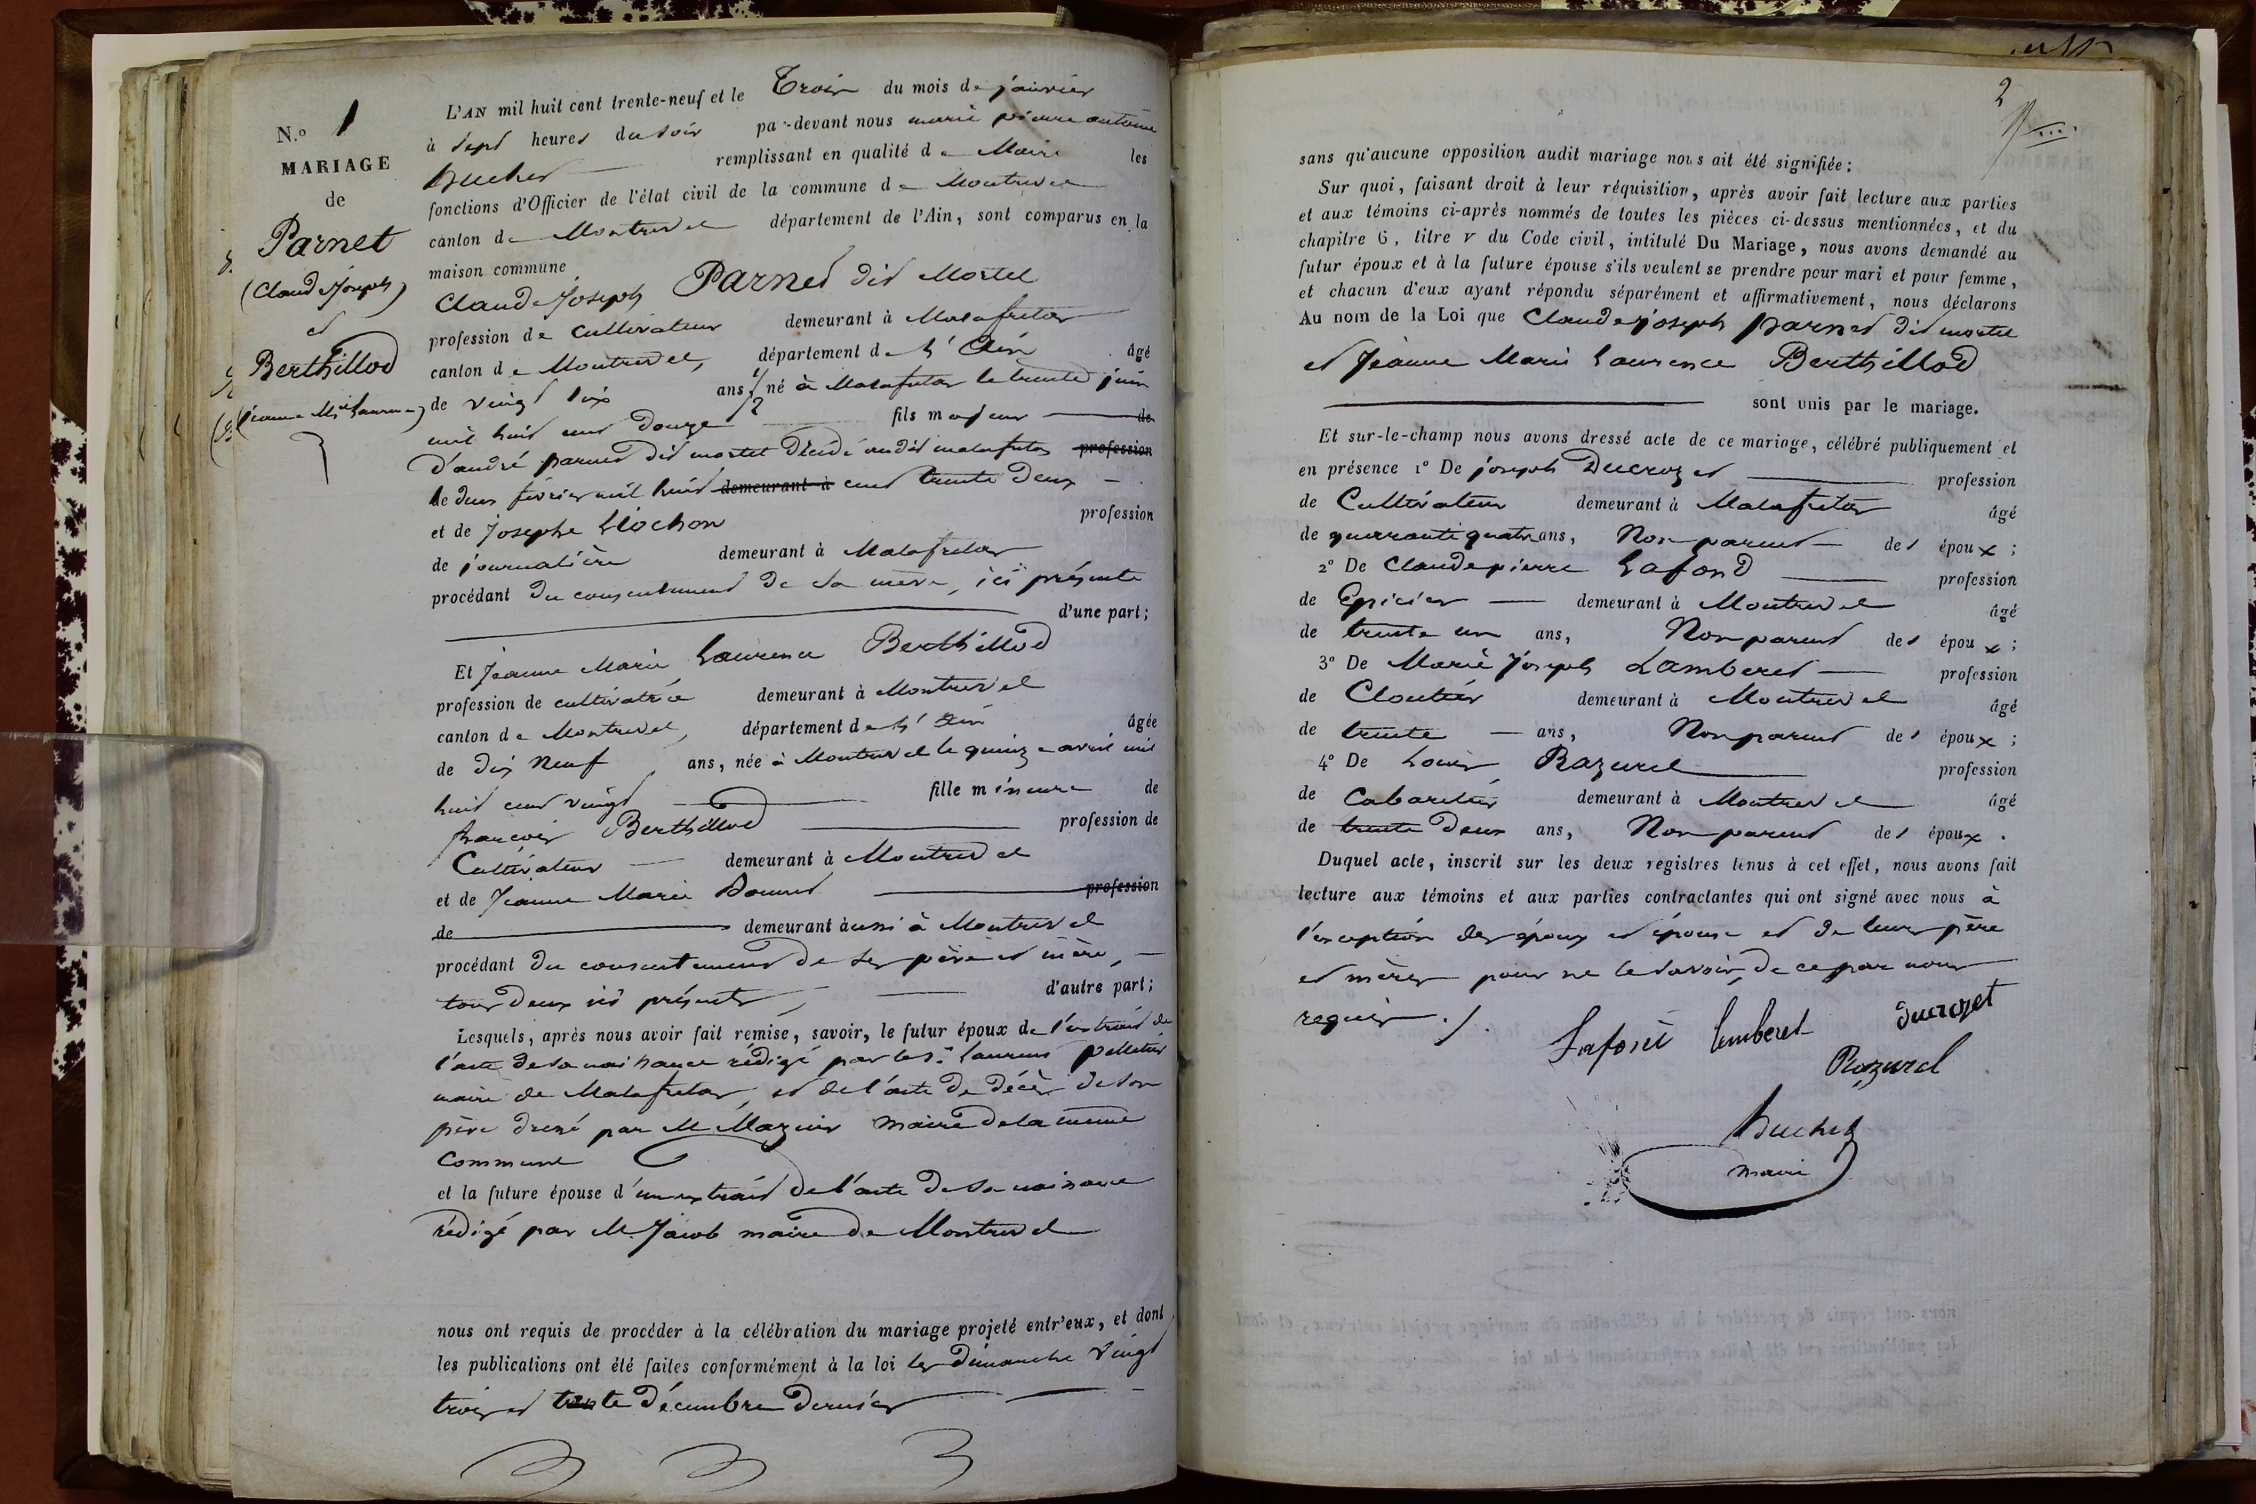 N.º 1
MARIAGE
de
Parnet
(Claude Joseph)
et
Berthillod
(Jeanne Mie Laurence)
L'AN mil huit cent trente-neuf et le Trois du mois de janvier
à sept heures du soir par-devant nous marie pierre antoine
Buchet remplissant en qualité de Maire les
fonctions d'Officier de l'état civil de la commune de Montrevel
canton de Montrevel département de l'Ain, sont comparus en la
maison commune
Claude Joseph Parnet dit Mortel
profession de Cultivateur demeurant à Malafretaz
canton de Montrevel, département de L'Ain âgé
de vingt six ans 1/2 né à Malafretaz le trente juin
mil huit cent douze fils majeur de
d'andré parnet dit mortel décédé audit malafretaz profession
le deux février mil huit demeurant à cent trente deux
et de Josephe Clochon profession
de journalière demeurant à Malafretaz
procédant du consentement de sa mère, ici présente
d'une part;
Et Jeanne Marie Laurence Berthillod
profession de cultivatrice demeurant à Montrevel
canton de Montrevel, département de L'Ain âgée
de dix neuf ans, née à Montrevel le quinze avril mil
huit cent vingt fille mineure de
françois Berthillod profession de
Cultivateur demeurant à Montrevel
et de Jeanne Marie profession
de demeurant aussi à Montrevel
procédant du consentement de ses père et mère,
tous deux ici présents, d'autre part;
Lesquels, après nous avoir fait remise, savoir, le futur époux de l'extrait de
l'acte de sa naissance rédigé par le Sr. Laurent pelletier
maire de Malafretaz, et de l'acte de décès de son
père dressé par M Mazuir Maire de la même
Commune
et la future épouse d'un extrait de l'acte de sa naissance
rédigé par M. Jacob maire de Montrevel
nous ont requis de procéder à la célébration du mariage projeté entr'eux, et dont
les publications ont été faites conformément à la loi les dimanche vingt
trois et trente décembre dernier
2
sans qu'aucune opposition audit mariage nous ait été signifiée;
Sur quoi, faisant droit à leur réquisition, après avoir fait lecture aux parties
et aux témoins ci-après nommés de toutes les pièces ci-dessus mentionnées, et du
chapitre 6, titre V du Code civil, intitulé Du Mariage, nous avons demandé au
futur époux et à la future épouse s'ils veulent se prendre pour mari et pour femme,
et chacun d'eux ayant répondu séparément et affirmativement, nous déclarons
Au nom de la Loi que Claude joseph parnet dit mortel
et Jeanne Marie Laurence Berthillod
sont unis par le mariage.
Et sur-le-champ nous avons dressé acte de ce mariage, célébré publiquement et
en présence 1º De joseph Ducrozet profession
de Cultivateur demeurant à Malafretaz âgé
de quarrante quatre ans, Non parent des époux;
2º De Claude pierre Lafond profession
de Epicier demeurant à Montrevel âgé
de trente un ans, Non parent des époux;
3º De Marie Joseph Lamberet profession
de Cloutier demeurant à Montrevel âgé
de trente ans, Non parent des époux;
4º De Louis Razurel profession
de Cabaretier demeurant à Montrevel âgé
de trente deux ans, Non parent des époux.
Duquel acte, inscrit sur les deux registres tenus à cet effet, nous avons fait
lecture aux témoins et aux parties contractantes qui ont signé avec nous à
l'exception des époux et épouse et de leurs père
et mères pour ne le savoir, de ce par nous
requis ./.
Lamberet Ducrozet
Razurel
Buchet
maire